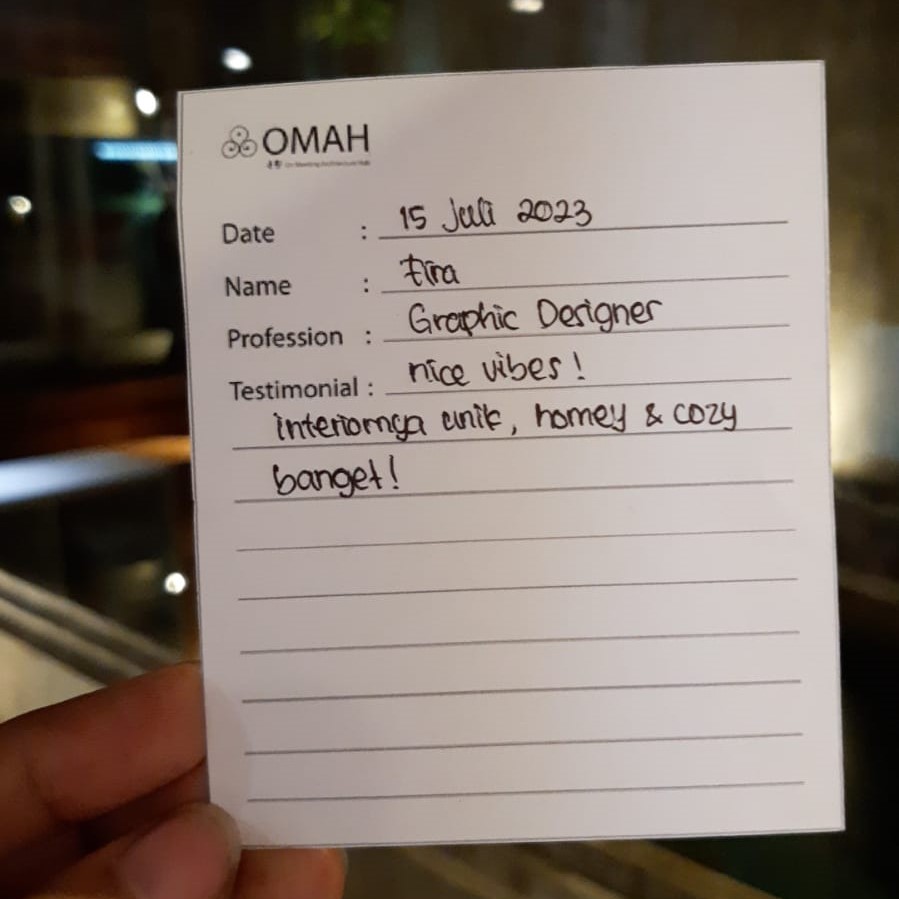 OMAH
Date : 15 Juli 2023
Name : Tira
Profession : Graphic Designer
Testimonial : nice vibes!
interiornya unik, homey & cozy
banget!